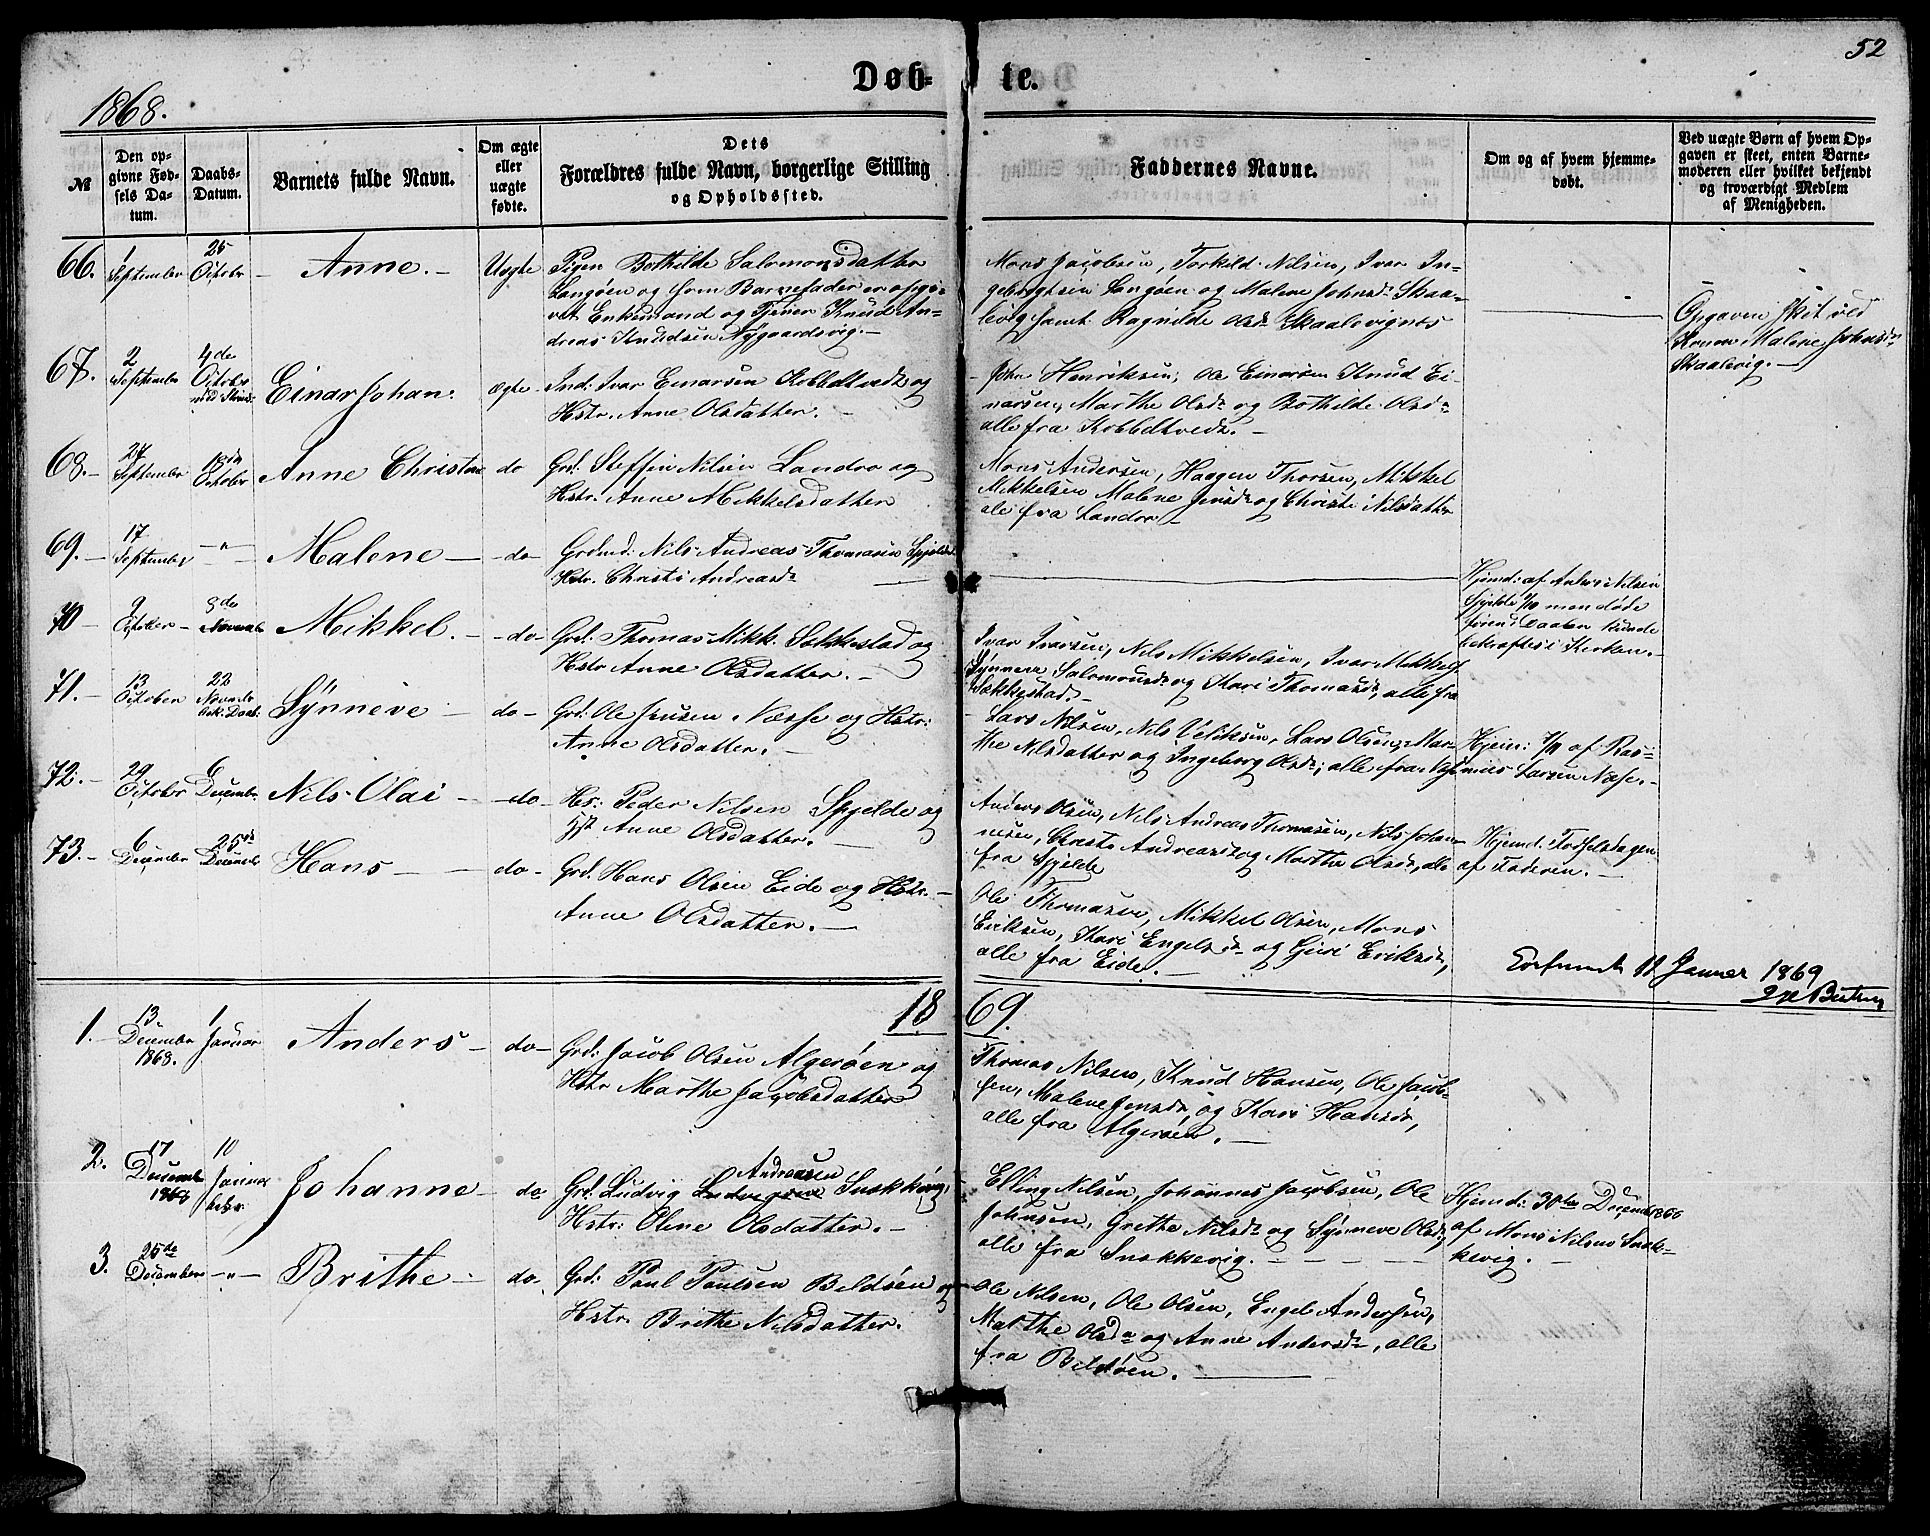 52
Døb-
te.
1868.
№
Den op-
givne Fød-
sels Da-
tum.
Daabs-
Datum.
Barnets fulde Navn.
Om ægte
eller
uægte
fødte.
Dets
Forældres fulde Navn, borgerlige Stilling
og Opholdssted.
Faddernes Navne.
Om og af hvem hjemme-
døbt.
Ved uægte Børn af hvem Op-
gaven er skeet, enten Barne-
moderen eller hvilket bekjendt
og troværdigt Medlem
af Menigheden.
66. 1 September 25 Octobr – Anne. – Uægte
Pigen Bothilde Salomonsdatter
Langøen og som Barnefader er opgi-
vet Enkemand og Tjener Knud An-
dreas Knudsen Nygaardsvig. –
Mons Jacobsen, Torkild Nilsen, Ivar In-
gebrigtsen Langøen og Malene Johnsdr Skaa-
levig samt Ragnilde Olsdr Skaalevignes
Opgaven skét ved
Konen Malene Johnsdr
Skaalevig. –
67. 2 September 4de Octobr Einar Johan. ægte
Ind: Ivar Einarsen Kobbeltvedt og
Hstr. Anne Olsdatter. –
John Henriksen, Ole Einarsen Knud Ei-
narsen, Marthe Olsdr og Bothilde Olsdr
alle fra Kobbeltvedt. –
68. – 24 September 18de Octobr Anne Christine do
Grd: Steffen Nilsen Landro og
Hstr: Anne Mikkelsdatter
Mons Andersen, Haagen Thorsen, Mikkel
Mikkelsen Malene Jensdr og Christi Nilsdatter
ale fra Landro –
69. – 17 September – " – Malene – – do –
Grdmd: Nils Andreas Thomasen Spjelde
Hstr. Christi Andreasdr
Hjemd: af Anders Nilsen
Spjelde 4/10 men døde
førend Daaben kunde
bekræftes i Kirken. –
70 – 9 October – 8de Novemb Mikkel. – – do –
Grd: Thomas Mikk. Sekkestad og
Hstr Anne Olsdatter. –
Ivar Ivarsen, Nils Mikkelsen, Ivar Mikkels
Synneve Salomonsdr og Kari Thomasdr, alle fra
Sækkestad. –
71. – 13 October 22 Novemb Synneve – do –
Grd: Ole Jensen Næsse og Hstr:
Anne Olsdatter. –
Lars Nilsen, Nils Veliksen, Lars Olsen, Mar-
the Nilsdatter og Ingeborg Olsdr; alle fra Næs
Hjem: 1/11 af Ras-
mus Larsen Næse. –
72. – 29 Octobr 6 Decembr. Nils Olai – – do –
Hs: Peder Nilsen Spjelde og
Hst Anne Olsdatter. –
Anders Olsen, Nils Andreas Thomasen, Nils Johan-
nesen, Christi Andreasdr og Marthe Olsdr, alle
fra Spjelde
Hjemd: Fødselsdagen
af Faderen. –
73. – 6 December 25de Decemb Hans – do –
Grd: Hans Olsen Eide og Hstr. –
Anne Olsdatter. –
Ole Thomasen, Mikkel Olsen, Mons
Eriksen, Kari Engelsdr og Guri Eriksdr,
alle fra Eide. –
11 Januar 1869
1869.
1. – 13. Decembr 1868. 1 Januar Anders – do –
Grd: Jacob Olsen Algerøen og
Hstr Marthe Jacobsdatter
Thomas Nilsen, Knud Hansen, Ole Jacob-
sen, Malene Jensdr, og Kari Hansdr,
alle fra Algerøen. –
2. 17 Decemb 1868 10 Januar Johanne – do
Andreasen
Grd: Ludvig Ludvigsen Snekkevig
Hstr: Oline Olsdatter. –
Elling Nilsen, Johannes Jacobsen, Ole
Johnsen, Grethe Nilsdr og Synneve Olsdr,
alle fra Snekkevig. – – – –
Hjemd: 30te Decemb 1868
af Mons Nilsen Snek-
kevig. –
3. 25de December – " – Brithe – do.
Grd: Paul Paulsen Bildøen og
Hstr. Brithe Nilsdatter.
Ole Nilsen, Ole Olsen, Engel Andersen,
Marthe Olsdr og Anne Andersdr, alle
fra Bildøen.